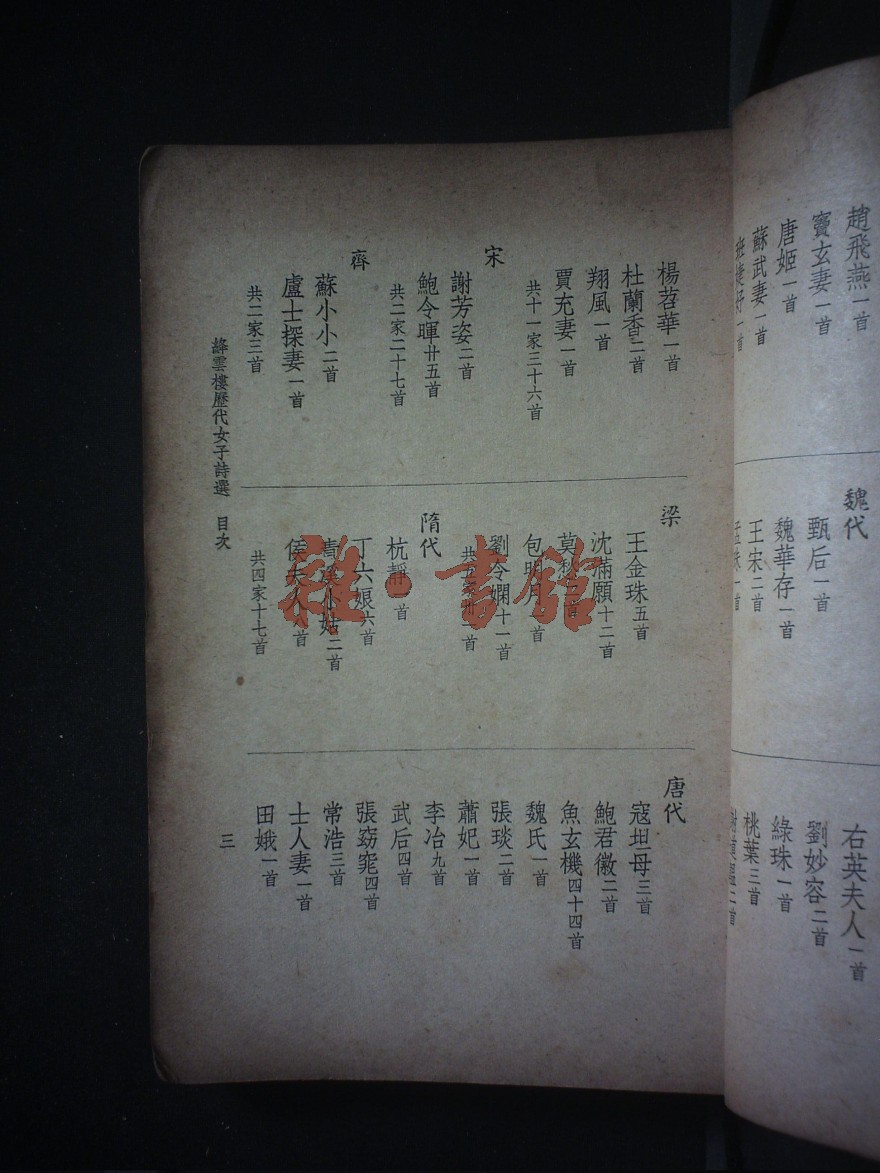 趙飛燕一首
竇玄妻一首
唐姬一首
蘇武妻一首
班婕妤一首
魏代
甄后一首
魏華存一首
王宋二首
孟珠一首
右英夫人一首
劉妙容二首
綠珠一首
桃葉三首
楊苕華一首
杜蘭香二首
翔風一首
賈充妻一首
共十一家三十六首
宋
謝芳姿二首
鮑令暉廿五首
共二家二十七首
齊
蘇小小二首
盧士探妻一首
共二家三首
梁
王金珠五首
沈滿願十二首
莫愁
包明月一首
劉令嫻十一首
共五家卅一首
隋代
杭靜一首
丁六娘六首
小姑二首
侯夫人首
共四家十七首
唐代
寇坦母三首
鮑君徽二首
魚玄機四十四首
魏氏一首
張琰二首
蕭妃一首
李冶九首
武后四首
張窈窕四首
常浩三首
士人妻一首
田娥一首
絳雲樓歷代女子詩選 目次
三
雜·書館